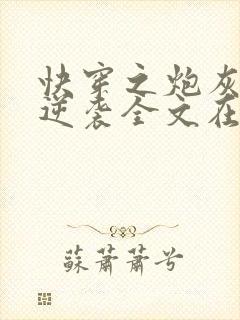 快穿之炮灰
逆袭全文在
蘇蕭蕭兮